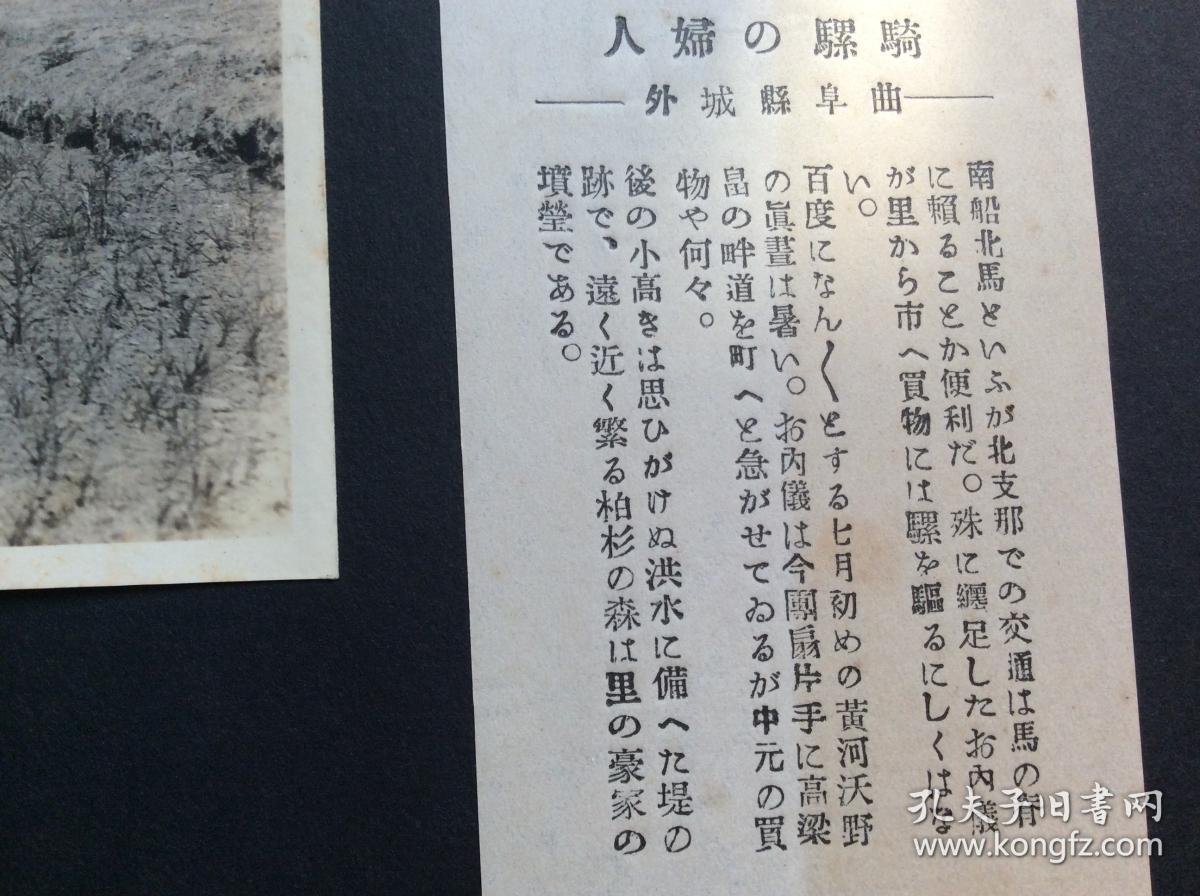 騎騾の婦人
曲阜縣城外
南船北馬といふが北支那での交通は馬の背
に賴ることか便利だ。殊に纏足したお內儀
が里から市へ買物には騾を驅るにしくはな
い。
百度になん〱とする七月初めの黃河沃野
の眞晝は暑い。お內儀は今團扇片手に高梁
畠の畔道を町へと急がせてゐるが中元の買
物や何々。
後の小高きは思ひがけぬ洪水に備へた堤の
跡で、遠く近く繁る柏杉の森は里の豪家の
墳塋である。
孔夫子旧书网
www.kongfz.com